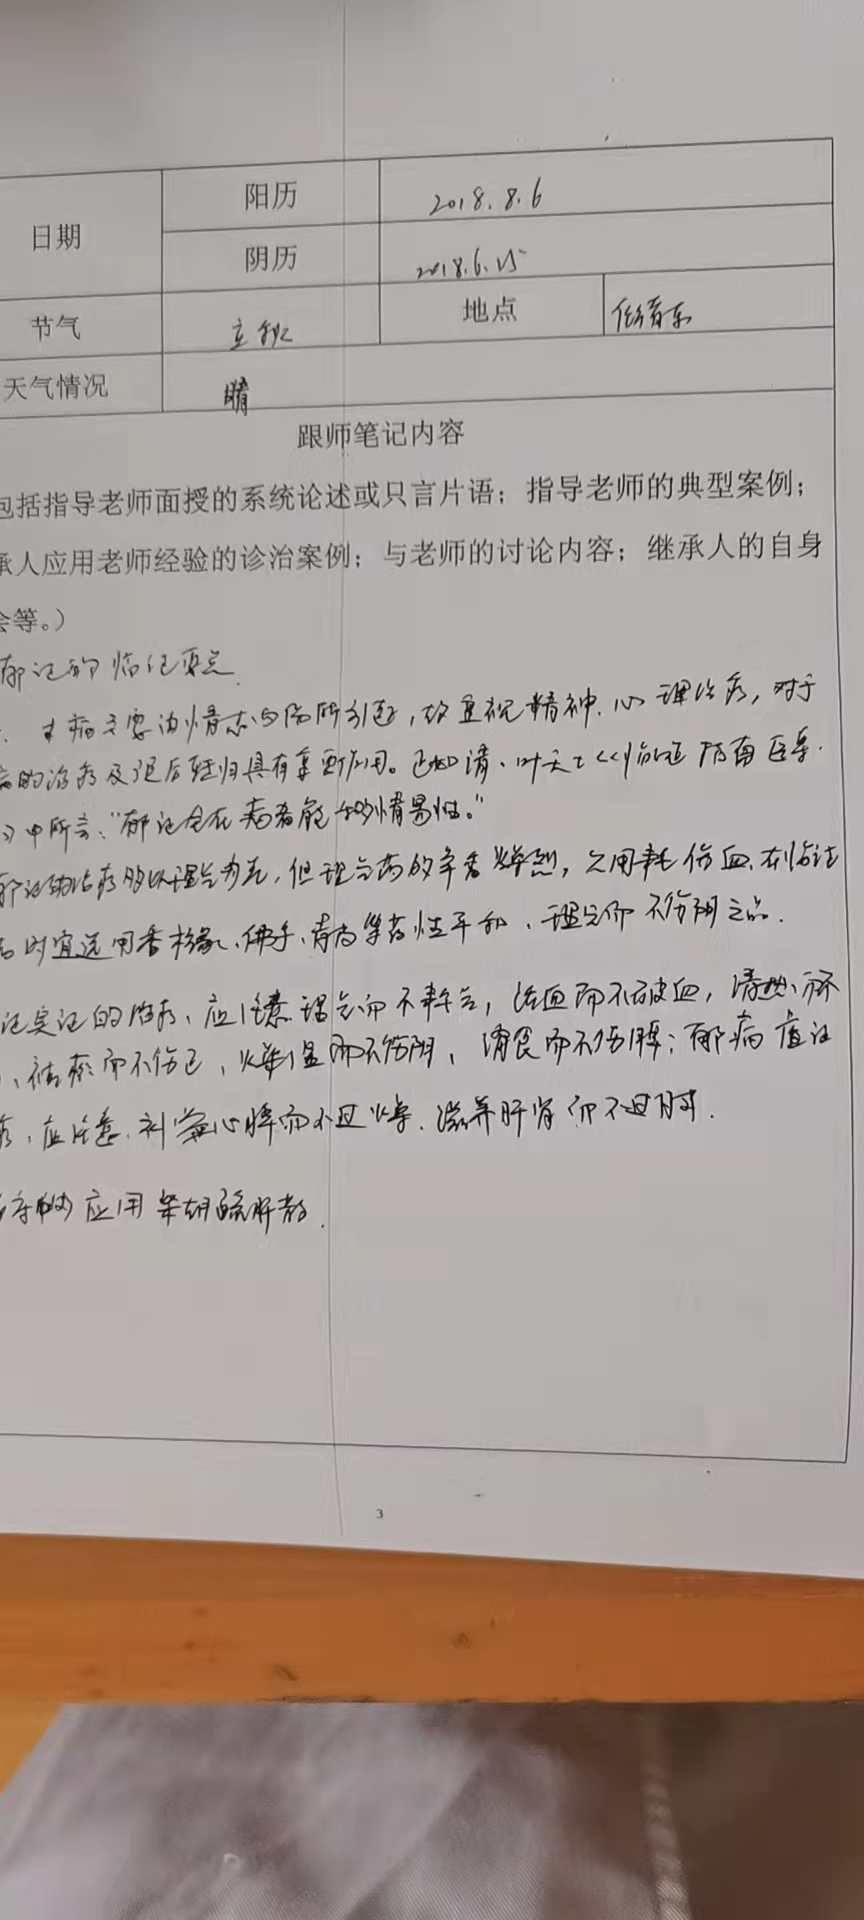 日期 阳历 2018.8.6
阴历 2018.6.25
节气 立秋 地点
天气情况 晴
跟师笔记内容
包括指导老师面授的系统论述或只言片语；指导老师的典型案例；
承人应用老师经验的诊治案例；与老师的讨论内容；继承人的自身
会等。）
郁证的临证要点
本病主要由情志内伤所引起，故重视精神、心理治疗，对于
病的治疗及愈后转归具有重要作用。正如清、叶天士《临证指南医案·
》中所言："郁证全在病者能移情易性。"
郁证的治疗多以理气为先，但理气药多辛香燥烈，久用耗伤血，在临证
时宜选用香橼、佛手、青皮等药性平和、理气而不伤阴之品．
证实证的治疗，应注意理气而不耗气，活血而不破血，清热而不
、祛痰而不伤正，燥湿而不伤阴，消食而不伤脾；郁病虚证
，应注意，补益心脾而不过燥．滋养肝肾而不过腻．
应用柴胡疏肝散．
3